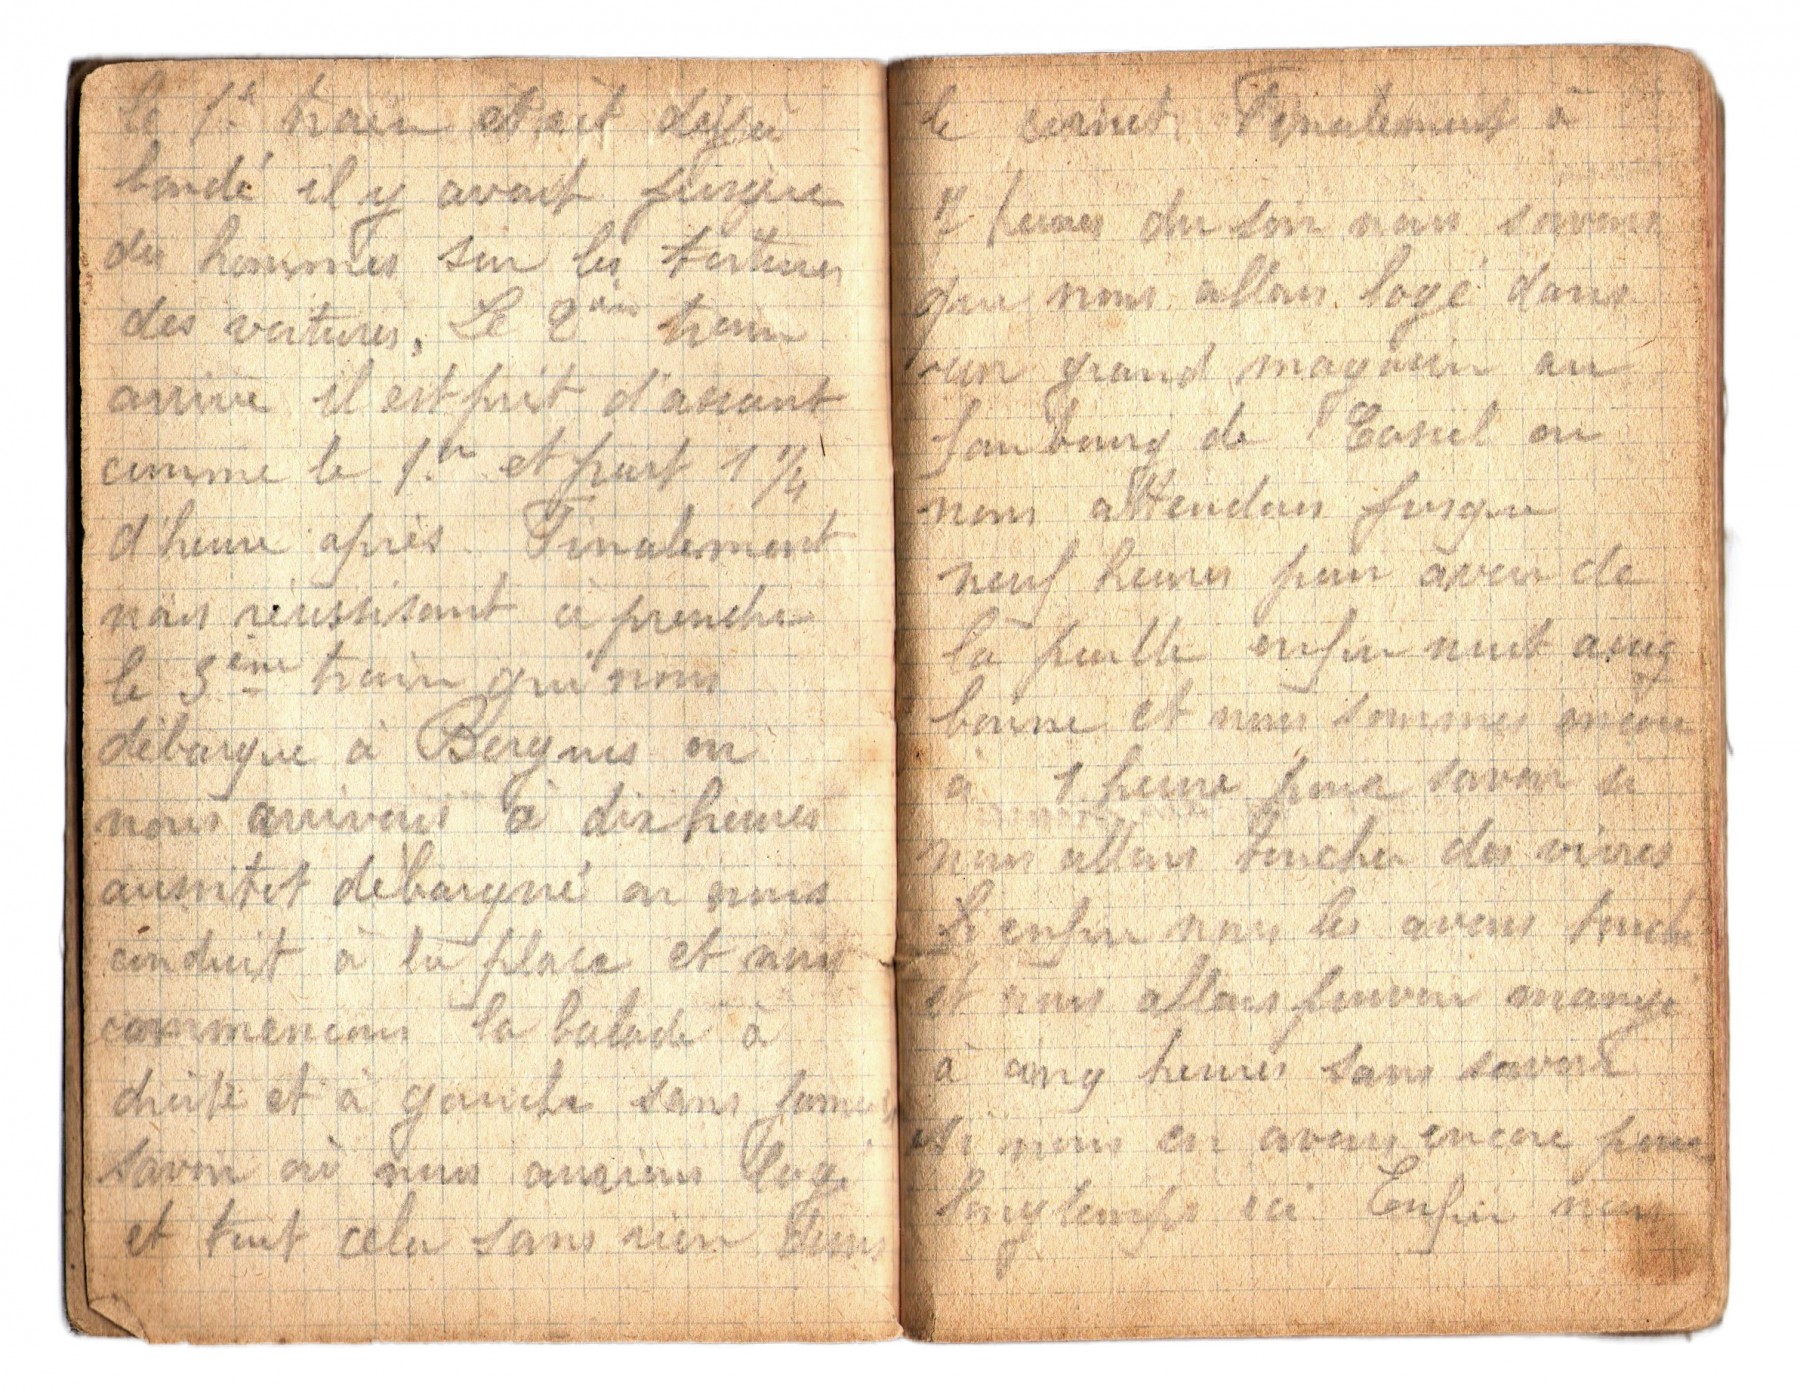 le 1er train etait déja
bondé il y avait jusque
des hommes sur les toitures
des voitures. Le 2ème train
arrive il est prit d'assaut
comme le 1er et part 1/4
d'heure après. Finalement
nous réussisont à prendre
le 3ème train qui nous
débarque à Bergues ou
nous arrivons à dix heures
aussitot débarqué on nous
conduit à la place et nous
commencons la balade à
droite et à gauche sans jamais
savoir où nous aurions logé
et tout cela sans rien dans
le cornet. Finalement à
heures du soir nous savons
que nous allons logé dans
un grand magasin au
faubourg de Cassel ou
nous attendons jusque
neuf heures pour avoir de
la paille enfin nuit assez
bonne et nous sommes encore
à 1 heure pour savoir si
nous allons toucher des vivres
Et enfin nous les avons touché
et nous allons pouvoir mangé
à cinq heures sans savoir
si nous en avons encore pour
longtemps ici. Enfin nous